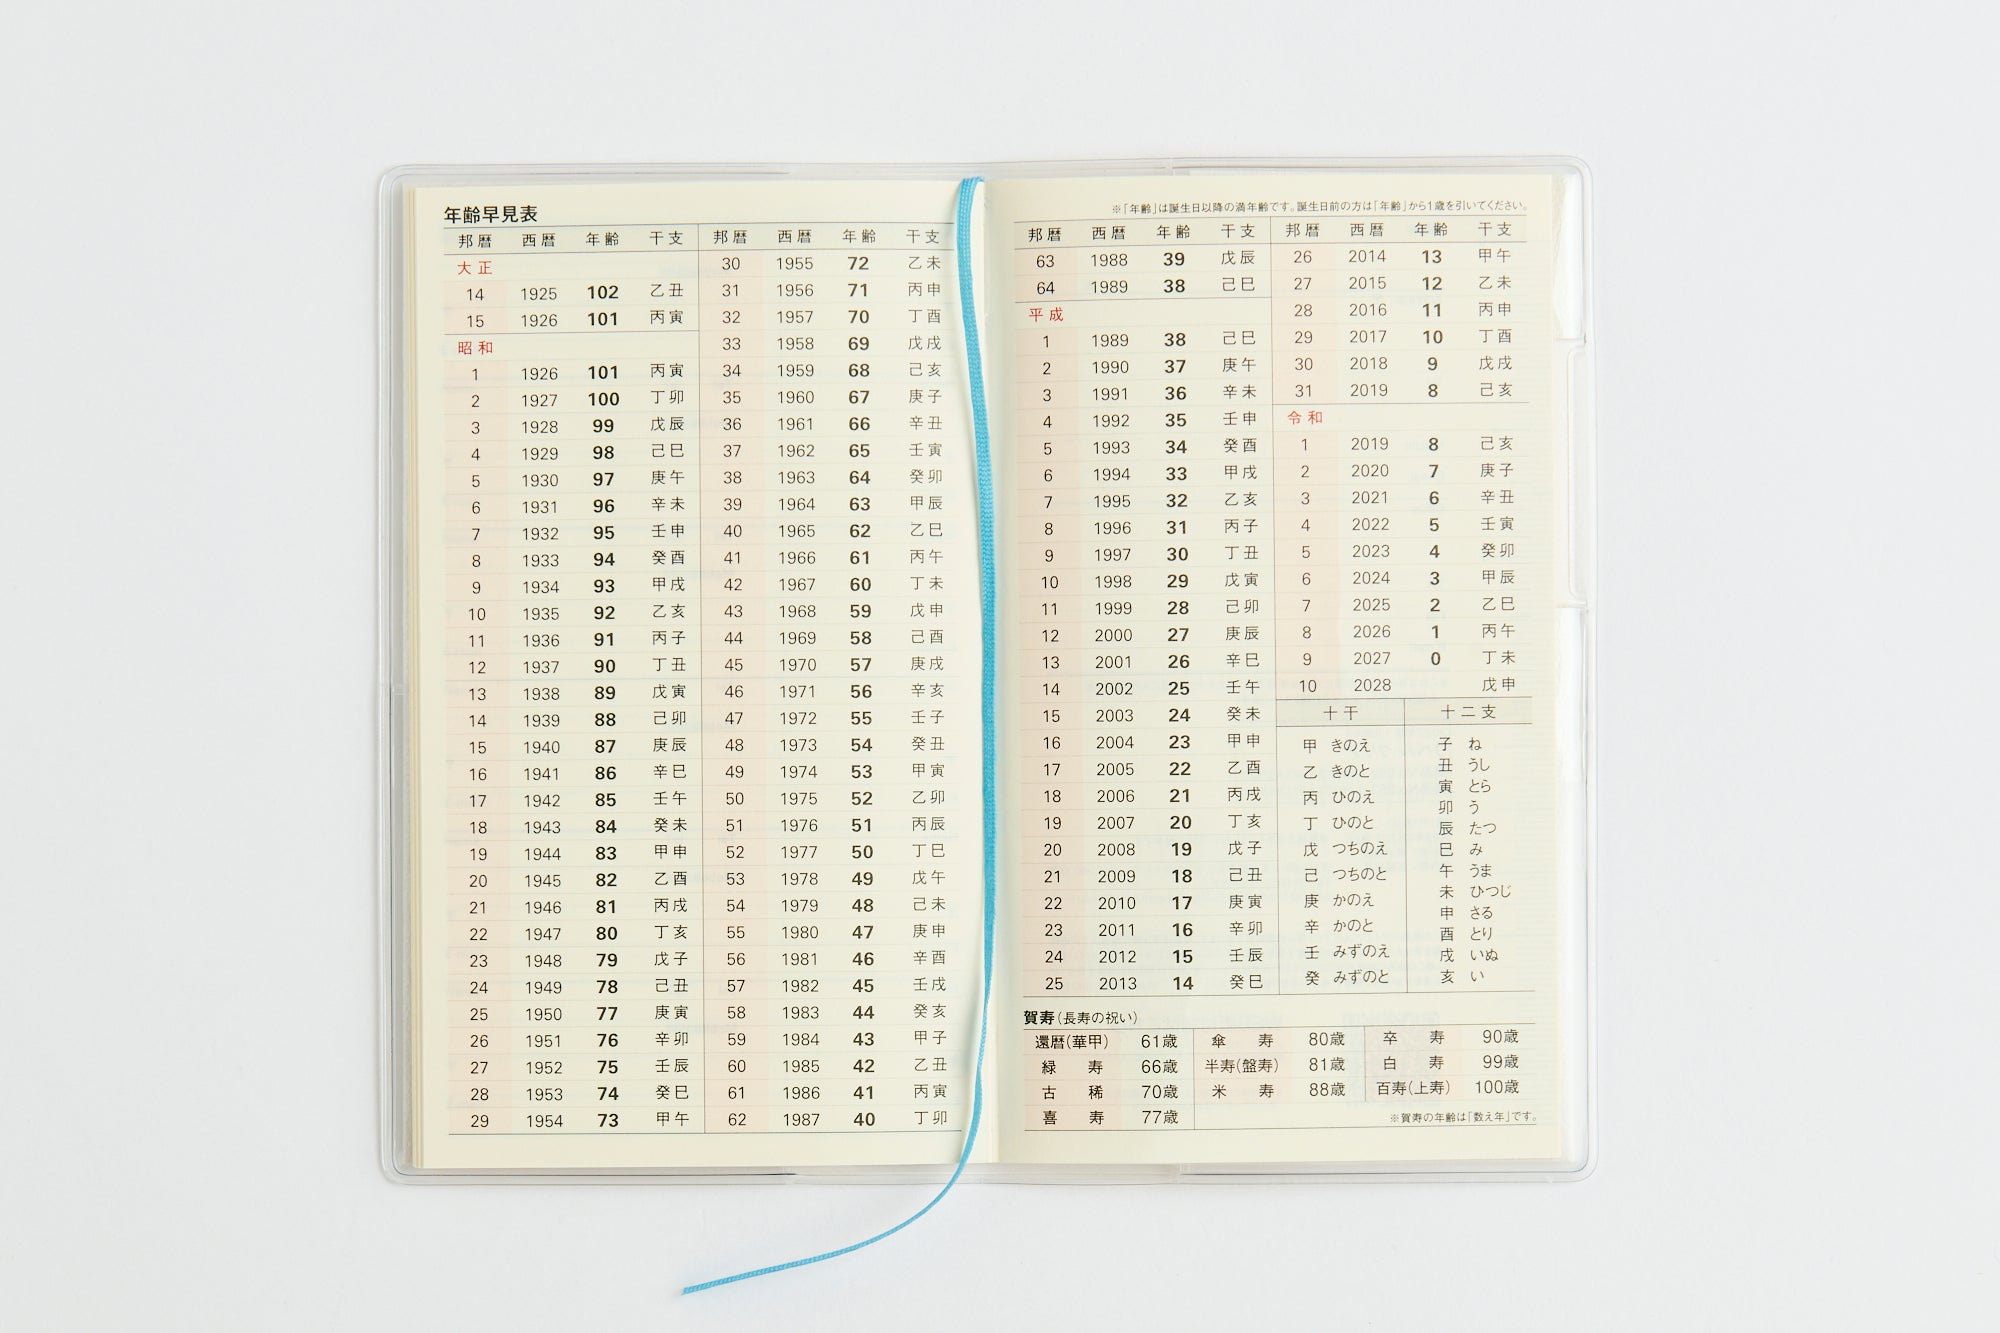 年齢早見表
邦暦 西暦 年齢 干支
大正
14 1925 102 乙丑
15 1926 101 丙寅
昭和
1 1926 101 丙寅
2 1927 100 丁卯
3 1928 99 戊辰
4 1929 98 己巳
5 1930 97 庚午
6 1931 96 辛未
7 1932 95 壬申
8 1933 94 癸酉
9 1934 93 甲戌
10 1935 92 乙亥
11 1936 91 丙子
12 1937 90 丁丑
13 1938 89 戊寅
14 1939 88 己卯
15 1940 87 庚辰
16 1941 86 辛巳
17 1942 85 壬午
18 1943 84 癸未
19 1944 83 甲申
20 1945 82 乙酉
21 1946 81 丙戌
22 1947 80 丁亥
23 1948 79 戊子
24 1949 78 己丑
25 1950 77 庚寅
26 1951 76 辛卯
27 1952 75 壬辰
28 1953 74 癸巳
29 1954 73 甲午
邦暦 西暦 年齢 干支
30 1955 72 乙未
31 1956 71 丙申
32 1957 70 丁酉
33 1958 69 戊戌
34 1959 68 己亥
35 1960 67 庚子
36 1961 66 辛丑
37 1962 65 壬寅
38 1963 64 癸卯
39 1964 63 甲辰
40 1965 62 乙巳
41 1966 61 丙午
42 1967 60 丁未
43 1968 59 戊申
44 1969 58 己酉
45 1970 57 庚戌
46 1971 56 辛亥
47 1972 55 壬子
48 1973 54 癸丑
49 1974 53 甲寅
50 1975 52 乙卯
51 1976 51 丙辰
52 1977 50 丁巳
53 1978 49 戊午
54 1979 48 己未
55 1980 47 庚申
56 1981 46 辛酉
57 1982 45 壬戌
58 1983 44 癸亥
59 1984 43 甲子
60 1985 42 乙丑
61 1986 41 丙寅
62 1987 40 丁卯
※「年齢」は誕生日以降の満年齢です。誕生日前の方は「年齢」から1歳を引いてください。
邦暦 西暦 年齢 干支
63 1988 39 戊辰
64 1989 38 己巳
平成
1 1989 38 己巳
2 1990 37 庚午
3 1991 36 辛未
4 1992 35 壬申
5 1993 34 癸酉
6 1994 33 甲戌
7 1995 32 乙亥
8 1996 31 丙子
9 1997 30 丁丑
10 1998 29 戊寅
11 1999 28 己卯
12 2000 27 庚辰
13 2001 26 辛巳
14 2002 25 壬午
15 2003 24 癸未
16 2004 23 甲申
17 2005 22 乙酉
18 2006 21 丙戌
19 2007 20 丁亥
20 2008 19 戊子
21 2009 18 己丑
22 2010 17 庚寅
23 2011 16 辛卯
24 2012 15 壬辰
25 2013 14 癸巳
邦暦 西暦 年齢 干支
26 2014 13 甲午
27 2015 12 乙未
28 2016 11 丙申
29 2017 10 丁酉
30 2018 9 戊戌
31 2019 8 己亥
令和
1 2019 8 己亥
2 2020 7 庚子
3 2021 6 辛丑
4 2022 5 壬寅
5 2023 4 癸卯
6 2024 3 甲辰
7 2025 2 乙巳
8 2026 1 丙午
9 2027 0 丁未
10 2028 戊申
十干
甲 きのえ
乙 きのと
丙 ひのえ
丁 ひのと
戊 つちのえ
己 つちのと
庚 かのえ
辛 かのと
壬 みずのえ
癸 みずのと
十二支
子 ね
丑 うし
寅 とら
卯 う
辰 たつ
巳 み
午 うま
未 ひつじ
申 さる
酉 とり
戌 いぬ
亥 い
賀寿(長寿の祝い)
還暦(華甲) 61歳 傘寿 80歳 卒寿 90歳
緑寿 66歳 半寿(盤寿) 81歳 白寿 99歳
古稀 70歳 米寿 88歳 百寿(上寿) 100歳
喜寿 77歳
※賀寿の年齢は「数え年」です。